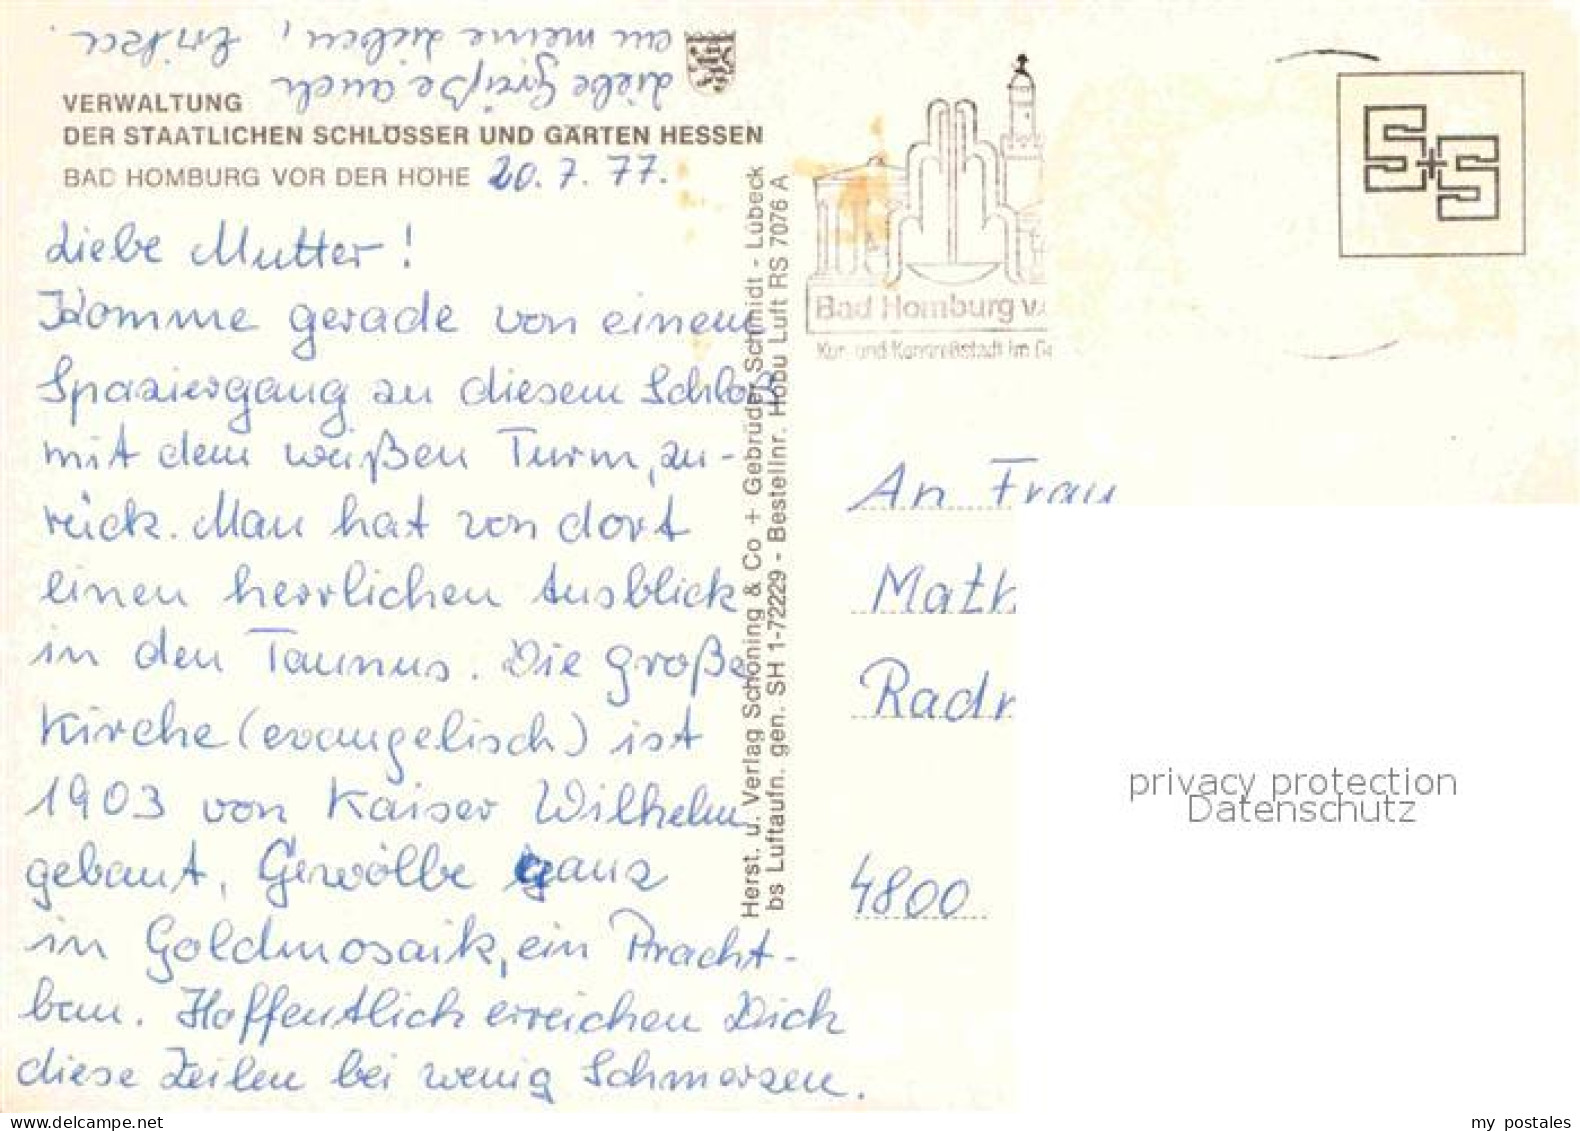 VERWALTUNG
DER STAATLICHEN SCHLÖSSER UND GÄRTEN HESSEN
BAD HOMBURG VOR DER HÖHE 20.7.77.
Liebe Mutter!
Komme gerade von einem
Spaziergang zu diesem Schloß
mit dem weißen Turm, zu-
rück. Man hat von dort
einen herrlichen Ausblick
in den Taunus. Die große
Kirche (evangelisch) ist
1903 von Kaiser Wilhelm
gebaut, Gewölbe ganz
in Goldmosaik, ein Pracht-
bau. Hoffentlich erreichen Dich
diese Zeilen bei wenig Schmerzen.
Liebe Grüße auch
an meine Lieben, Erika.
Herst. u. Verlag Schöning & Co + Gebrüder Schmidt - Lübeck
bs Luftaufn. gen. SH 1-72229 - Bestellnr. Hobu Luft RS 7076 A
Bad Homburg v.
Kur- und Kongreßstadt im
S+S
An Frau
Math
Radr
4800
privacy protection
Datenschutz
my postales